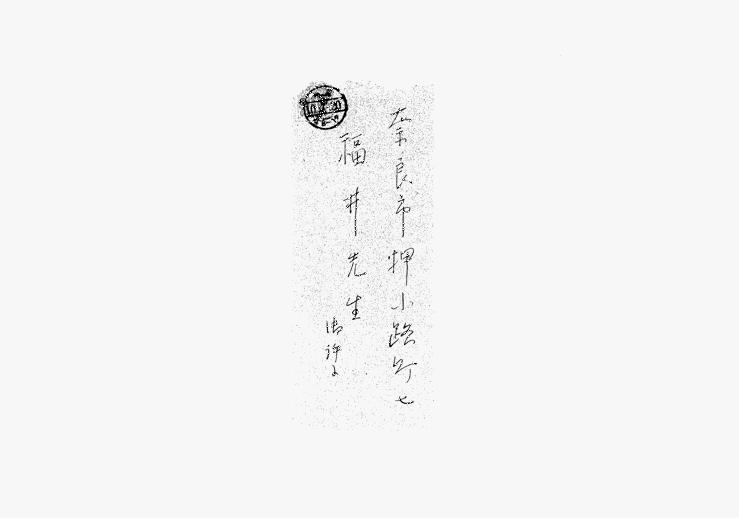 奈良市押小路町七
福井先生
御許に